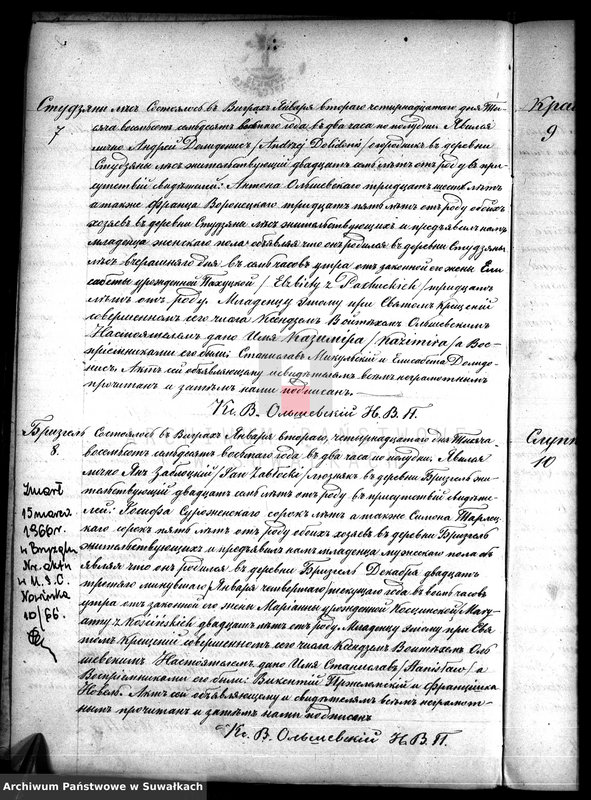 Студзяни лясъ
7
Состоялось въ Виграхъ Января втораго четырнадцатаго дня Ты-
сяча восемьсотъ семьдесятъ восьмаго года въ два часа по полудни. Явился
лично Андрей Долидонисъ /Andrzej Dolidonis/ огородникъ въ деревни
Студзяны лясъ жительствующій двадцать семь лѣтъ отъ роду въ при-
сутствіи свидѣтелей: Антона Ольшевскаго тридцать шесть лѣтъ
а также Франца Воронецкаго тридцать пять лѣтъ отъ роду обоихъ
хозяевъ въ деревни Студзяны лясъ жительствующихъ и предъявилъ намъ
младенца женскаго пола объявляя что онъ родился въ деревни Студзяны
лясъ вчерашняго дня въ семь часовъ утра отъ законной его жены Ели-
саветы урожденной Пахуцкой /Elżbiety z Pachuckich/ тридцать
лѣтъ отъ роду. Младенцу этому при Святомъ крещеніи
совершенномъ сего числа Ксендзомъ Войтѣхомъ Ольшевскимъ
Настоятелемъ дано Имя Казимѣра /Kazimira/ а Вос-
пріемниками его были: Станиславъ Микульскій и Елисавета Долидо-
нисъ. Актъ сей объявляющему и свидѣтелямъ всѣмъ неграмотнымъ
прочитанъ и затѣмъ нами подписанъ.
Кс. В. Ольшевскій Н. В. П.
Бризгель
8.
Состоялось въ Виграхъ Января втораго, четырнадцатаго дня Тысяча
восемьсотъ семьдесятъ восьмаго года въ два часа по полудни. Явился
лично Янъ Заблоцкій /Jan Zabłocki/ люзнякъ въ деревни Бризгель жи-
тельствующій двадцать семь лѣтъ отъ роду въ присутствіи свидѣте-
лей: Іосифа Суроженскаго сорокъ лѣтъ а также Симона Тарлец-
каго сорокъ пять лѣтъ отъ роду обоихъ хозяевъ въ деревни Бризгель
жительствующихъ и предъявилъ намъ младенца мужескаго пола объ-
являя что онъ родился въ деревни Бризгель Декабря двадцать
третьяго минувшаго Января четвертаго /текущаго года въ восемь часовъ
утра отъ законной его жены Маріанны урожденной Косцинской Mary-
anny z Kościńskich двадцать лѣтъ отъ роду. Младенцу этому при Свя-
томъ Крещеніи совершенномъ сего числа Ксендзомъ Войтѣхомъ Оль-
шевскимъ Настоятелемъ дано Имя Станиславъ /Stanisław/ а
Воспріемниками его были: Викентій Пржеленскій и Францишка
Новакъ. Актъ сей объявляющему и свидѣтелямъ всѣмъ неграмот-
нымъ прочитанъ и затѣмъ нами подписанъ
Кс. В. Ольшевскій Н. В. П.
Zmarł
15 marca
1966r.
w Bryzglu
Nr. aktu
w U.S.C.
Nowinka
10/66.
Кра
9
Слуп
10
Archiwum Państwowe w Suwałkach